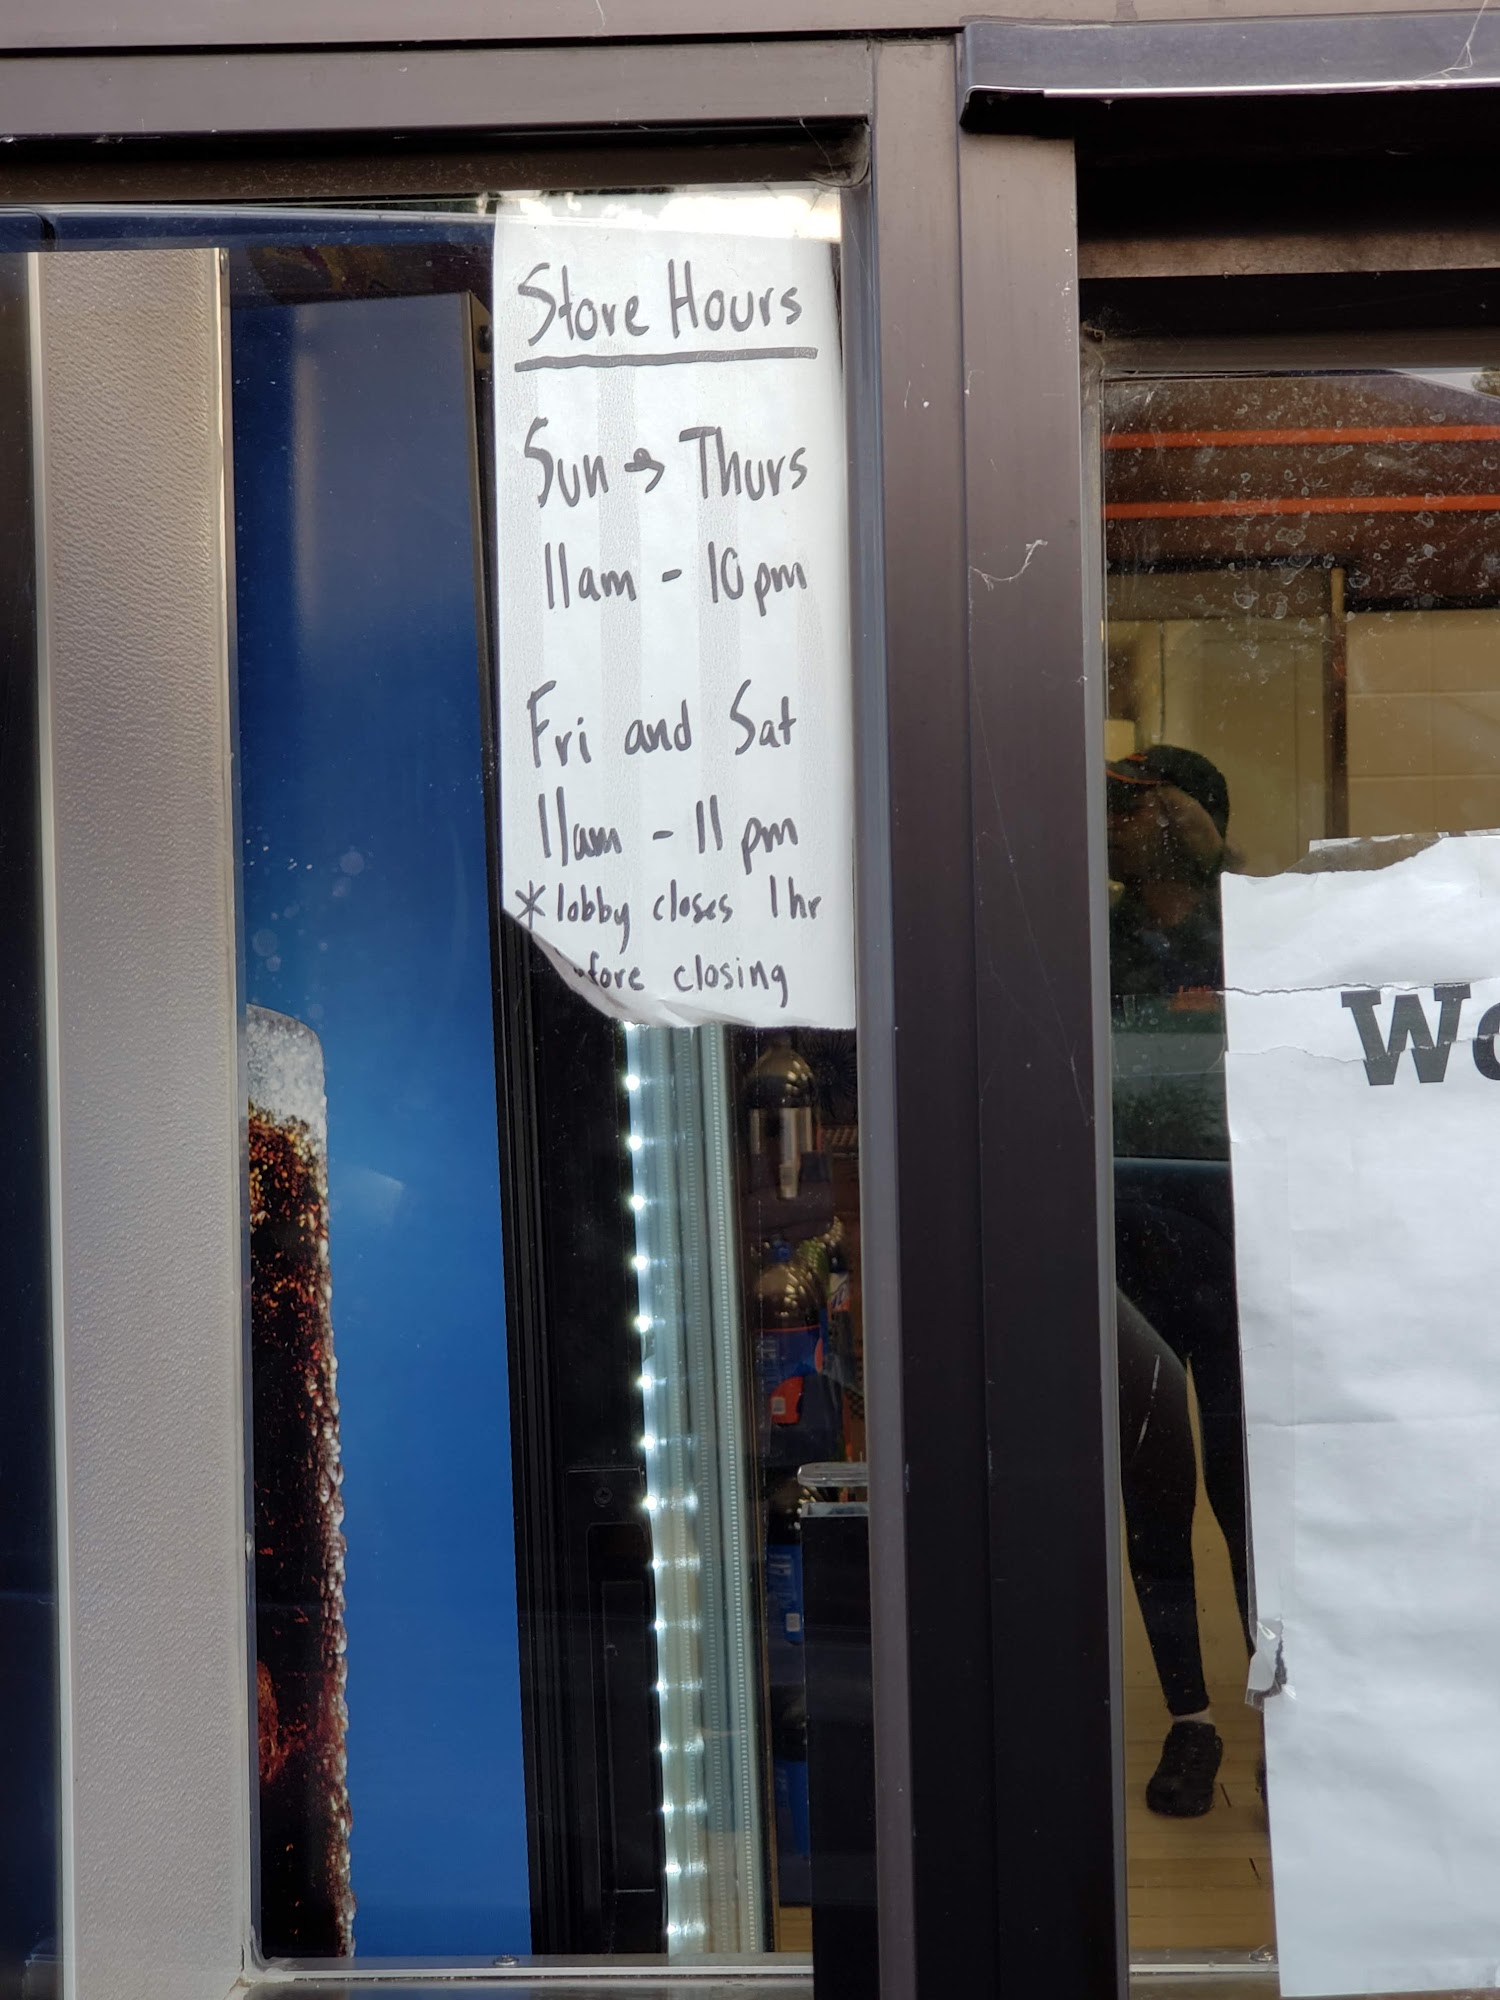 Store Hours
Sun → Thurs
11am - 10pm
Fri and Sat
11am - 11pm
*lobby closes 1hr
efore closing
Wo